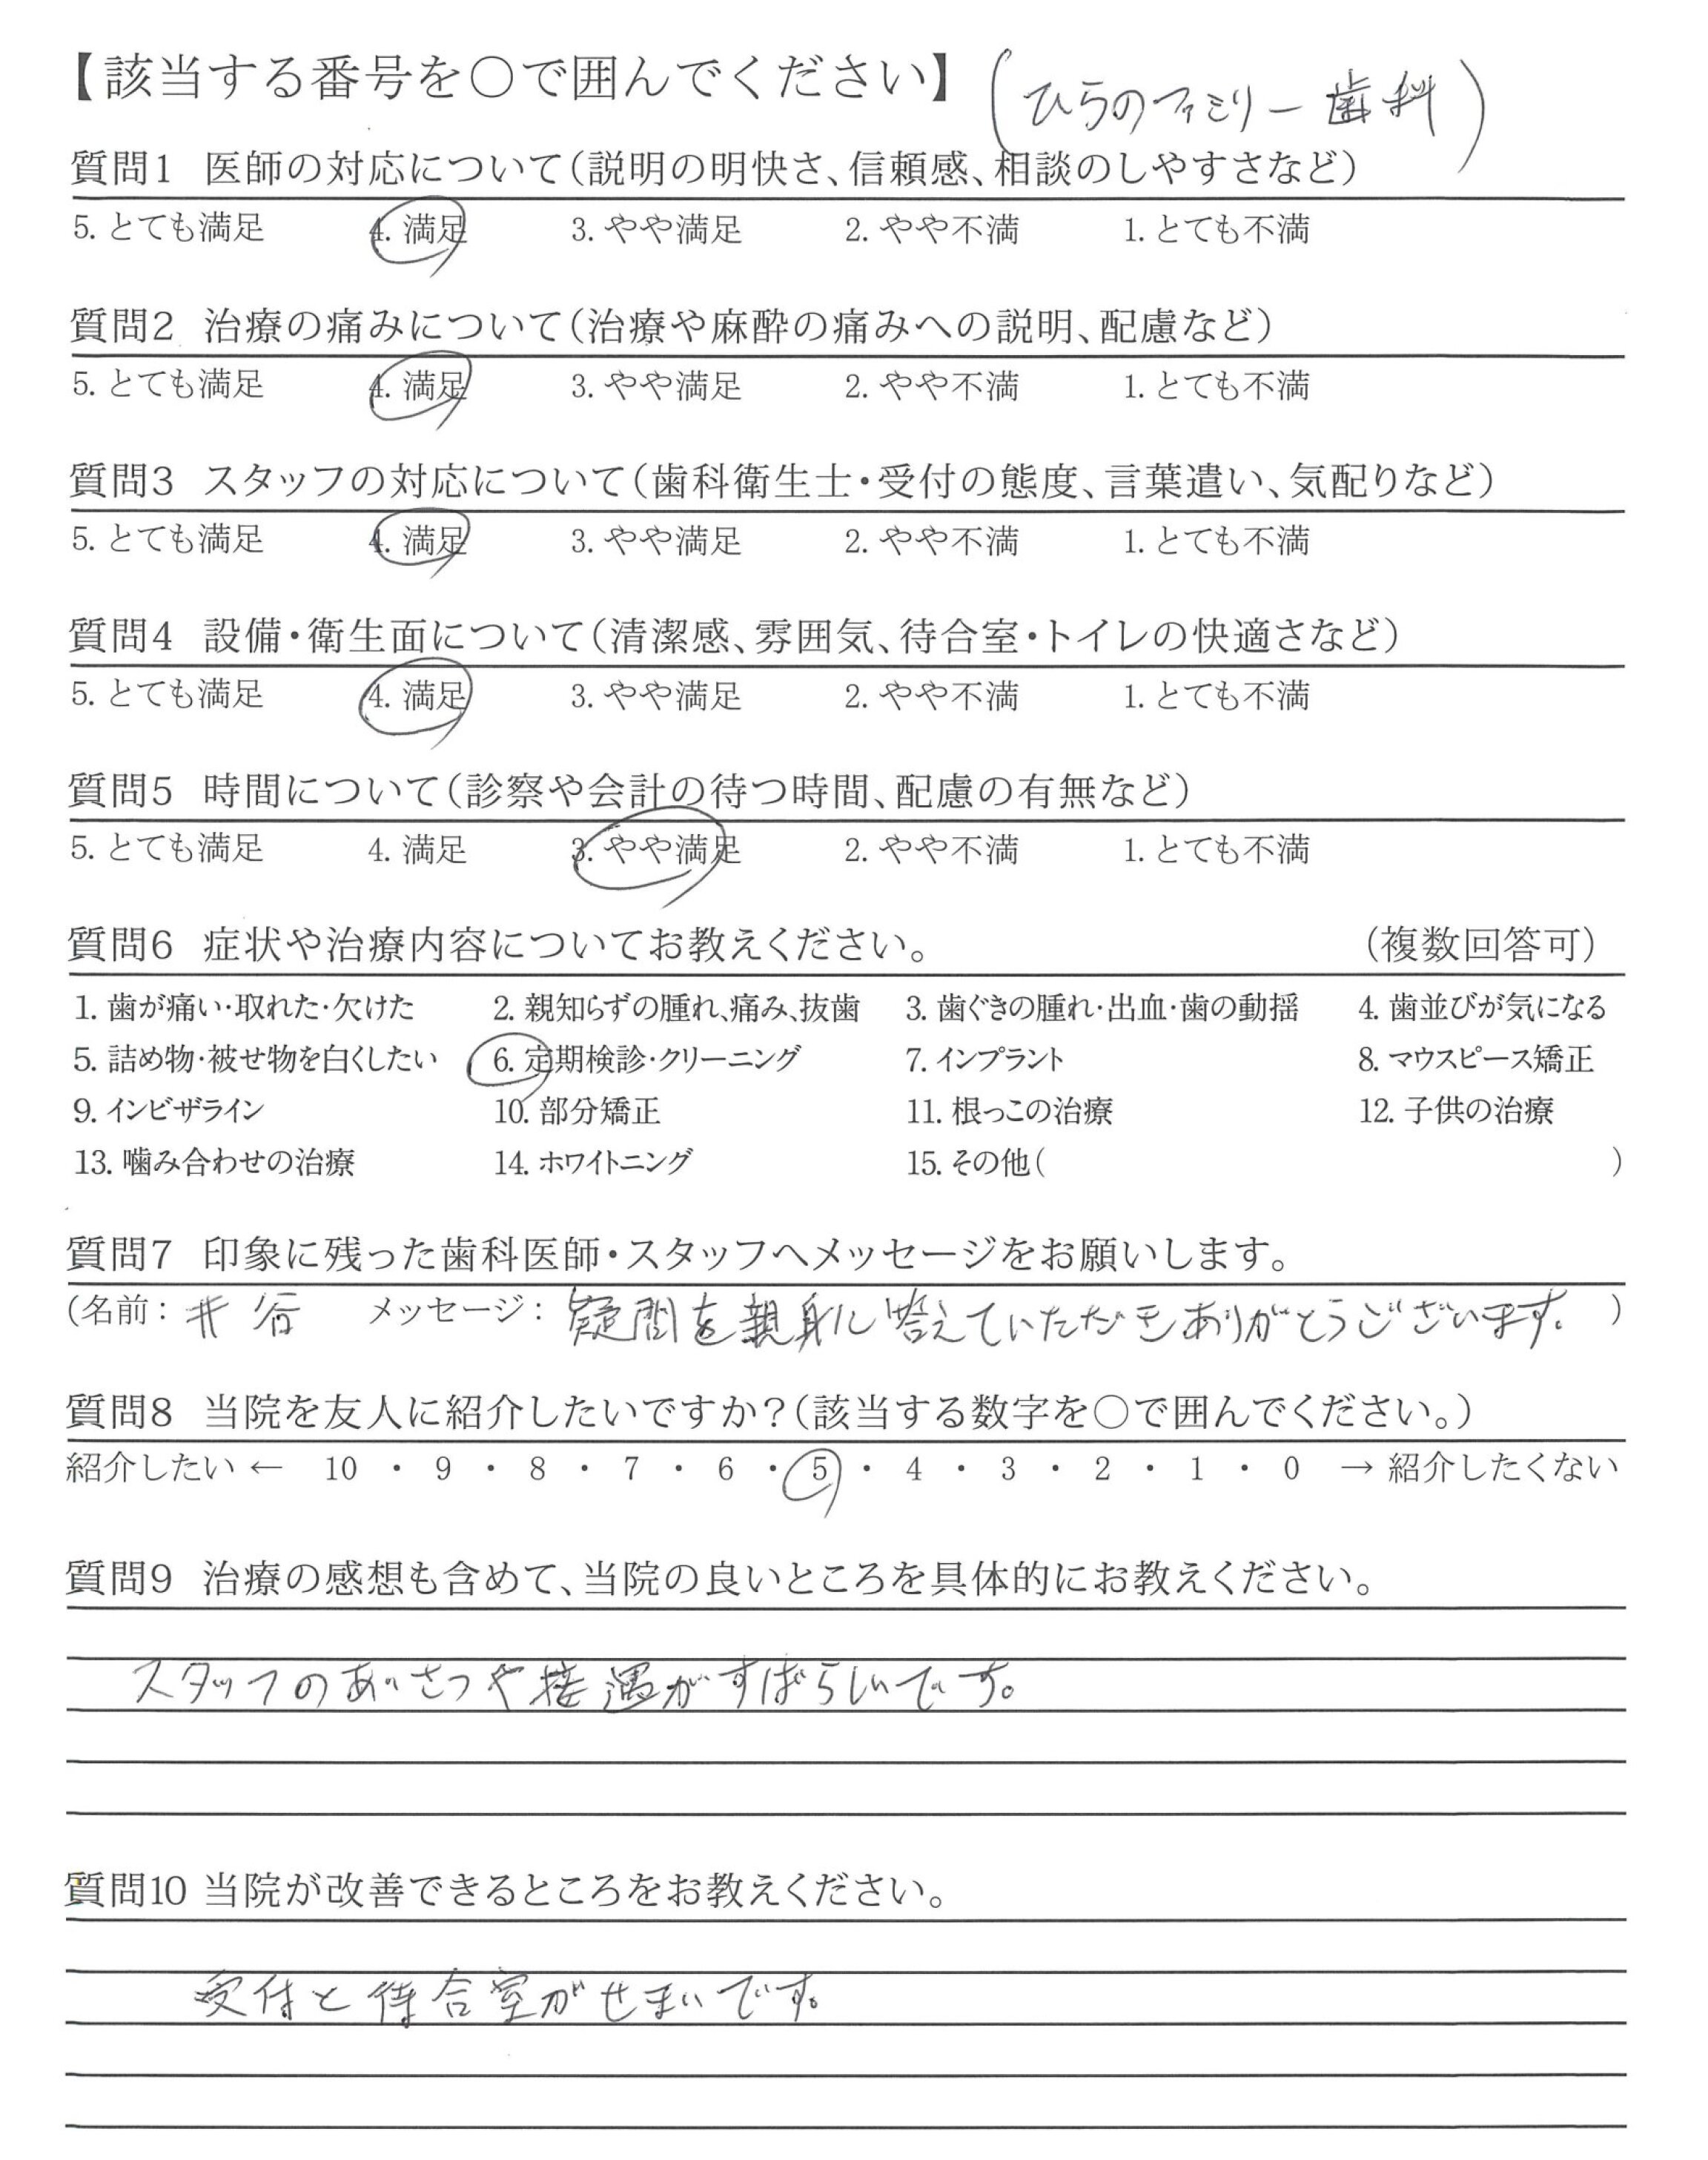 【該当する番号を〇で囲んでください】 (ひらのファミリー歯科)
質問1 医師の対応について(説明の明快さ、信頼感、相談のしやすさなど)
5. とても満足 4. 満足 3. やや満足 2. やや不満 1. とても不満
質問2 治療の痛みについて(治療や麻酔の痛みへの説明、配慮など)
5. とても満足 4. 満足 3. やや満足 2. やや不満 1. とても不満
質問3 スタッフの対応について(歯科衛生士・受付の態度、言葉遣い、気配りなど)
5. とても満足 4. 満足 3. やや満足 2. やや不満 1. とても不満
質問4 設備・衛生面について(清潔感、雰囲気、待合室・トイレの快適さなど)
5. とても満足 4. 満足 3. やや満足 2. やや不満 1. とても不満
質問5 時間について(診察や会計の待つ時間、配慮の有無など)
5. とても満足 4. 満足 3. やや満足 2. やや不満 1. とても不満
質問6 症状や治療内容についてお教えください。 (複数回答可)
1. 歯が痛い・取れた・欠けた 2. 親知らずの腫れ、痛み、抜歯 3. 歯ぐきの腫れ・出血・歯の動揺 4. 歯並びが気になる
5. 詰め物・被せ物を白くしたい 6. 定期検診・クリーニング 7. インプラント 8. マウスピース矯正
9. インビザライン 10. 部分矯正 11. 根っこの治療 12. 子供の治療
13. 噛み合わせの治療 14. ホワイトニング 15. その他( )
質問7 印象に残った歯科医師・スタッフへメッセージをお願いします。
(名前: 井谷 メッセージ: 疑問を親身に答えていただきありがとうございます。 )
質問8 当院を友人に紹介したいですか?(該当する数字を〇で囲んでください。)
紹介したい ← 10 ・ 9 ・ 8 ・ 7 ・ 6 ・ 5 ・ 4 ・ 3 ・ 2 ・ 1 ・ 0 → 紹介したくない
質問9 治療の感想も含めて、当院の良いところを具体的にお教えください。
スタッフのあいさつや接遇がすばらしいです。
質問10 当院が改善できるところをお教えください。
受付と待合室がせまいです。